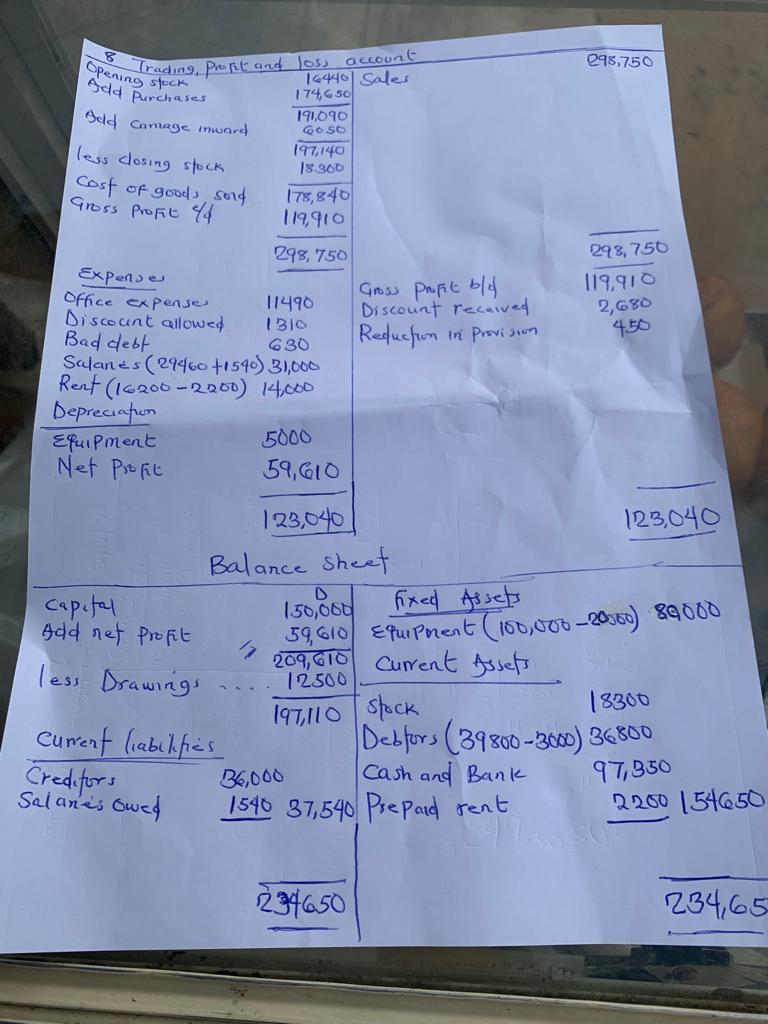 8 Trading, Profit and loss account
Opening stock 16440 Sales 298,750
Add Purchases 174,650
191,090
Add Carnage inward 6050
197,140
less closing stock 18300
Cost of goods sold 178,840
Gross Profit c/d 119,910
298,750 298,750
Expenses
Gross Profit b/d 119,910
Office expenses 11490 Discount received 2,680
Discount allowed 1310 Reduction in Provision 450
Bad debt 630
Salaries (29460 + 1540) 31,000
Rent (16200 - 2200) 14,000
Depreciation
Equipment 5000
Net Profit 59,610
123,040 123,040
Balance sheet
D Fixed Assets
Capital 150,000 Equipment (100,000 - 20000) 80000
Add net Profit 59,610
209,610 Current Assets
less Drawings .... 12500
197,110 Stock 18300
Current liabilities Debtors (39800 - 3000) 36800
Creditors 36,000 Cash and Bank 97,350
Salaries Owed 1540 37,540 Prepaid rent 2200 154650
234650 234,65